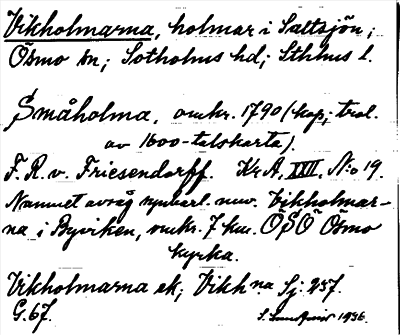 Vikholmarna, holmar i Saltsjön;
Ösmo sn; Sotholms hd; Sthlms l.
Småholma, omkr. 1790 (kop; trol.
av 1600-talskarta).
F. R. v. Friesendorff. Kr.A. XXII, N:o 19.
Namnet avsåg synberl. nuv. Vikholmar-
na i Byviken, omkr. 7 km. ÖSÖ Ösmo
kyrka.
Vikholmarna ek; Vikh na Sj. 257.
G. 67.
1936.